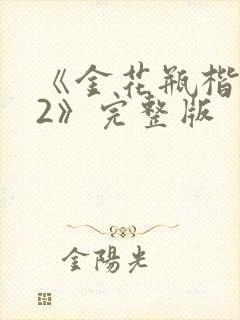 《金花瓶楷
2》完整版
金陽光